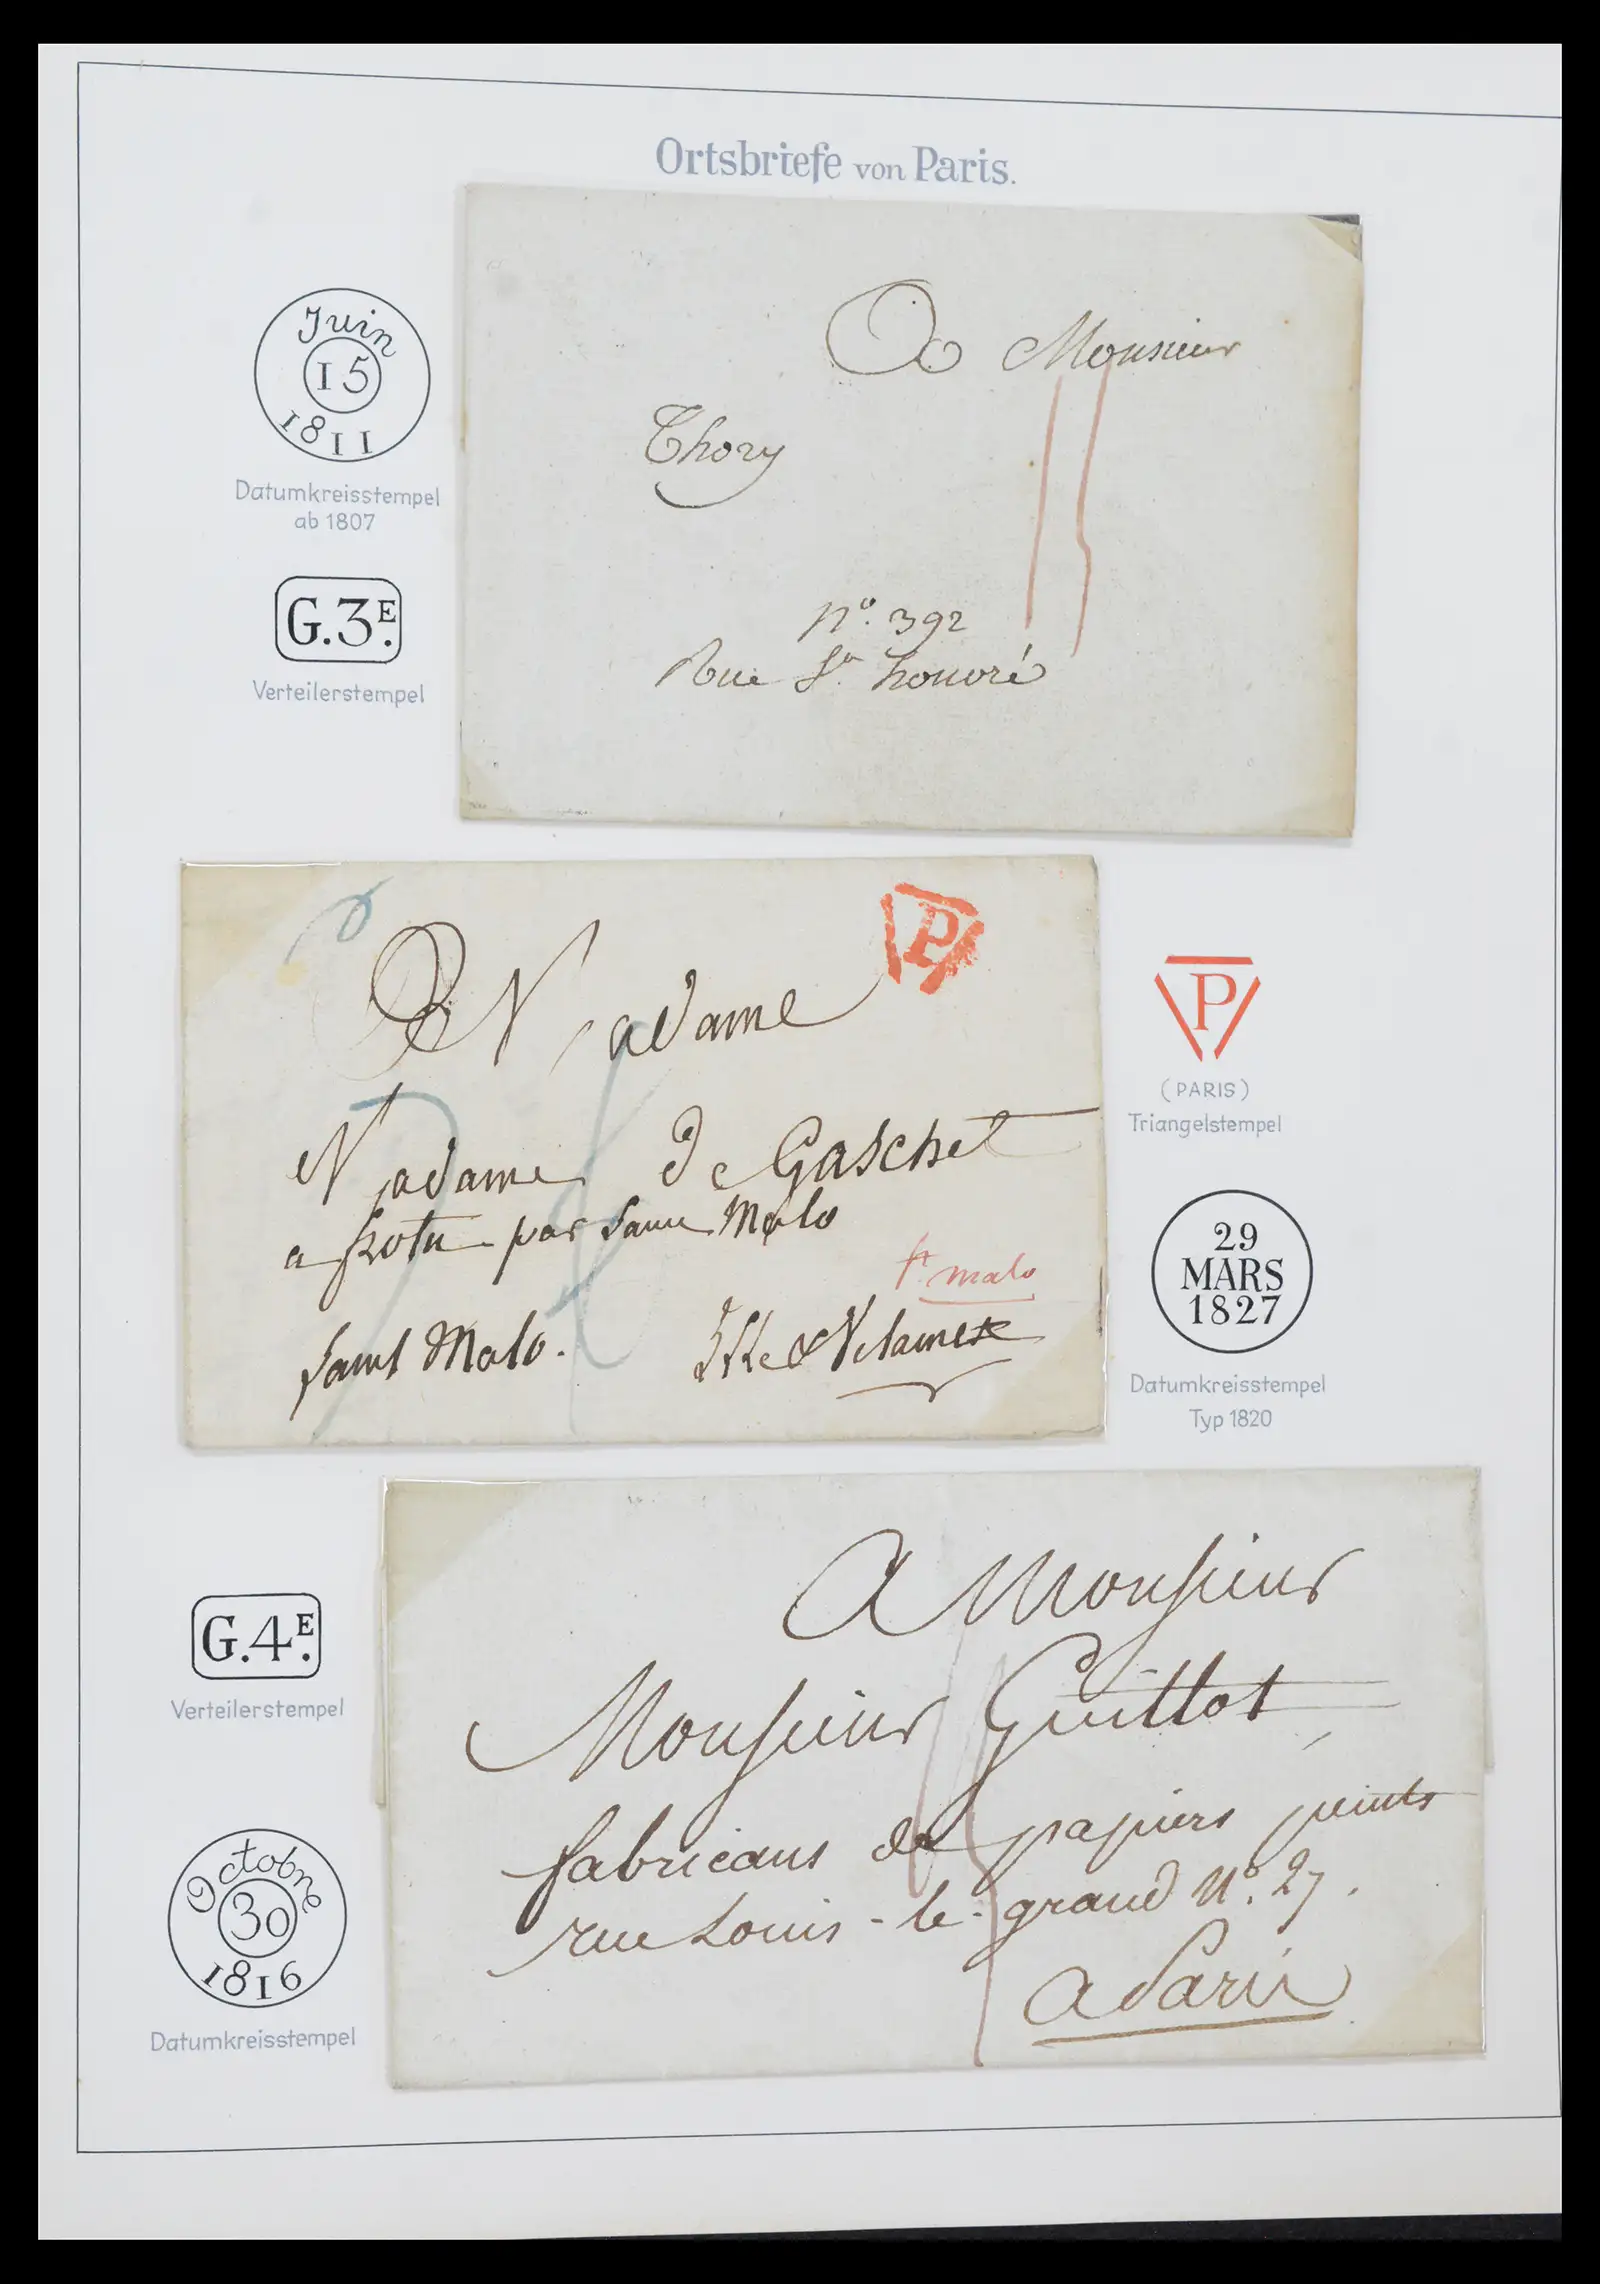 Ortsbriefe von Paris.
Juin
15
1811
Datumkreisstempel
ab 1807
G.3E.
Verteilerstempel
A Monsieur
Thory
n° 392
Rue St honoré
P
A Madame
Madame de Gaschet
a par Saint Malo
St malo
Saint Malo. Ille & Vilaine
P
(PARIS)
Triangelstempel
29
MARS
1827
Datumkreisstempel
Typ 1820
G.4E.
Verteilerstempel
Octobre
30
1816
Datumkreisstempel
A Monsieur
Monsieur Guillot
fabricans de papiers peints
rue Louis-le-grand N° 27.
a Paris